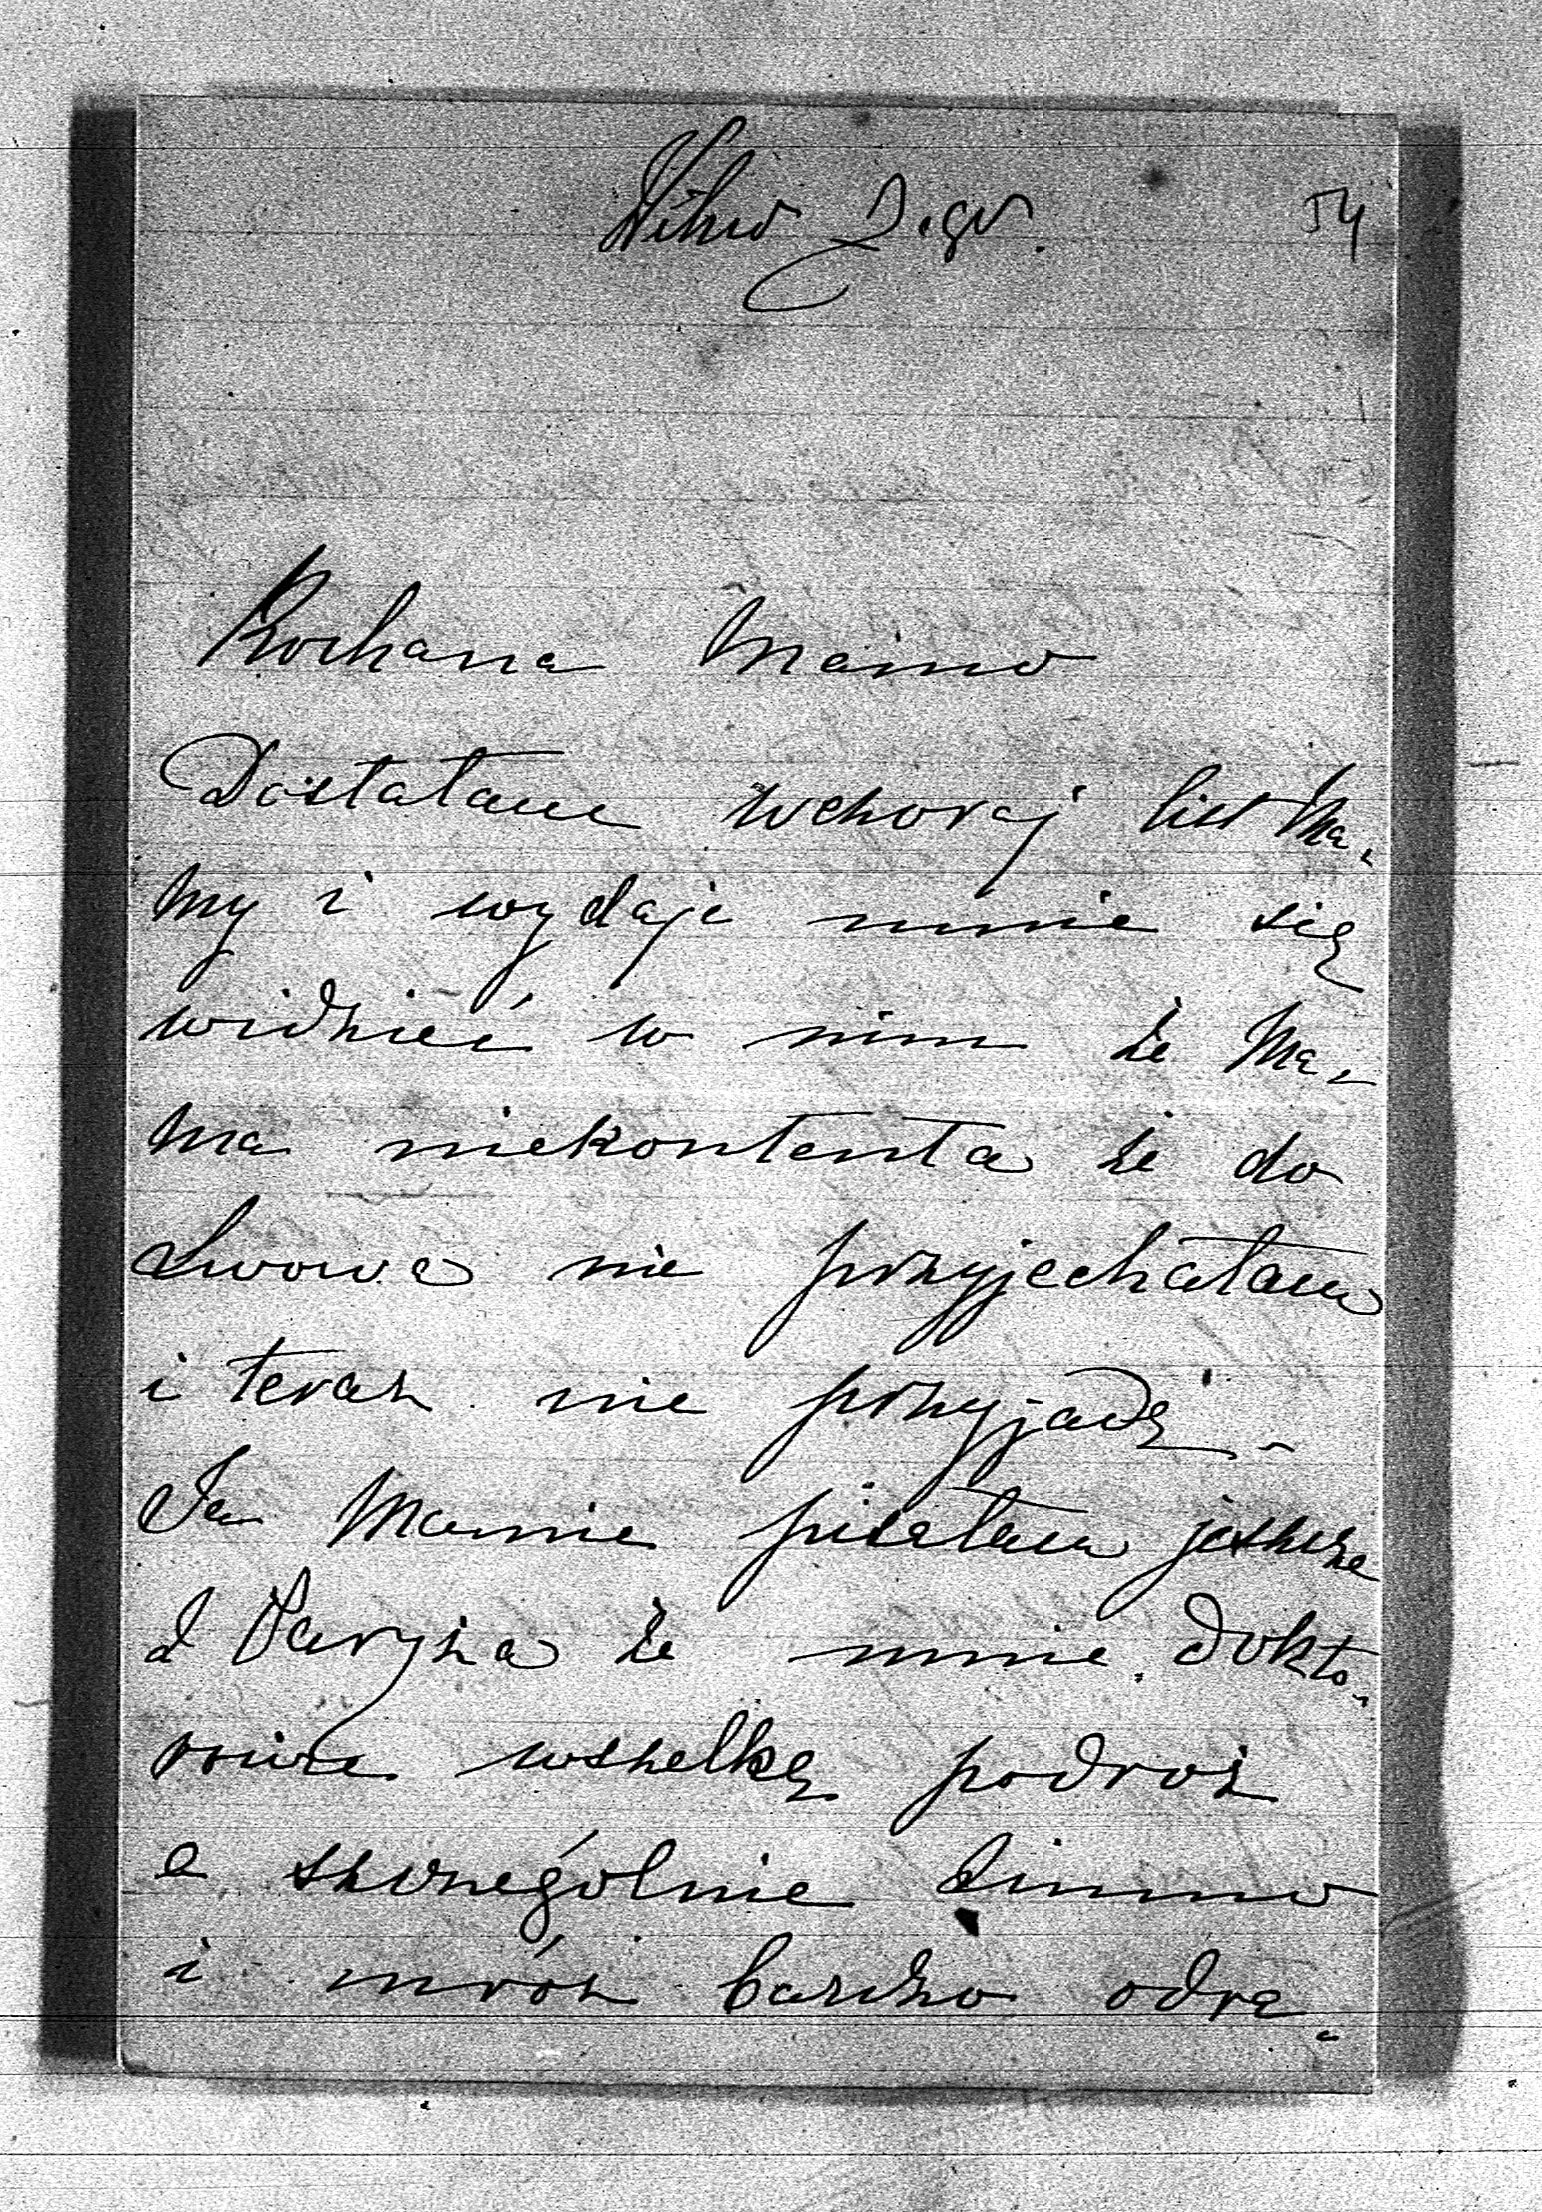 54
Kochana Mamo
Dostałam wchoraj list Ma-
my i wydaje mnie się
widzieć w nim że Ma-
ma niekontenta że do
Lwowa nie przyjechałam
i teraz nie przyjadę -
Ja Mamie pisałam jeszcze
z Paryża że mnie dokto-
rowie wszelką podroż
a szczególnie zimno
i mróz bardzo odra-